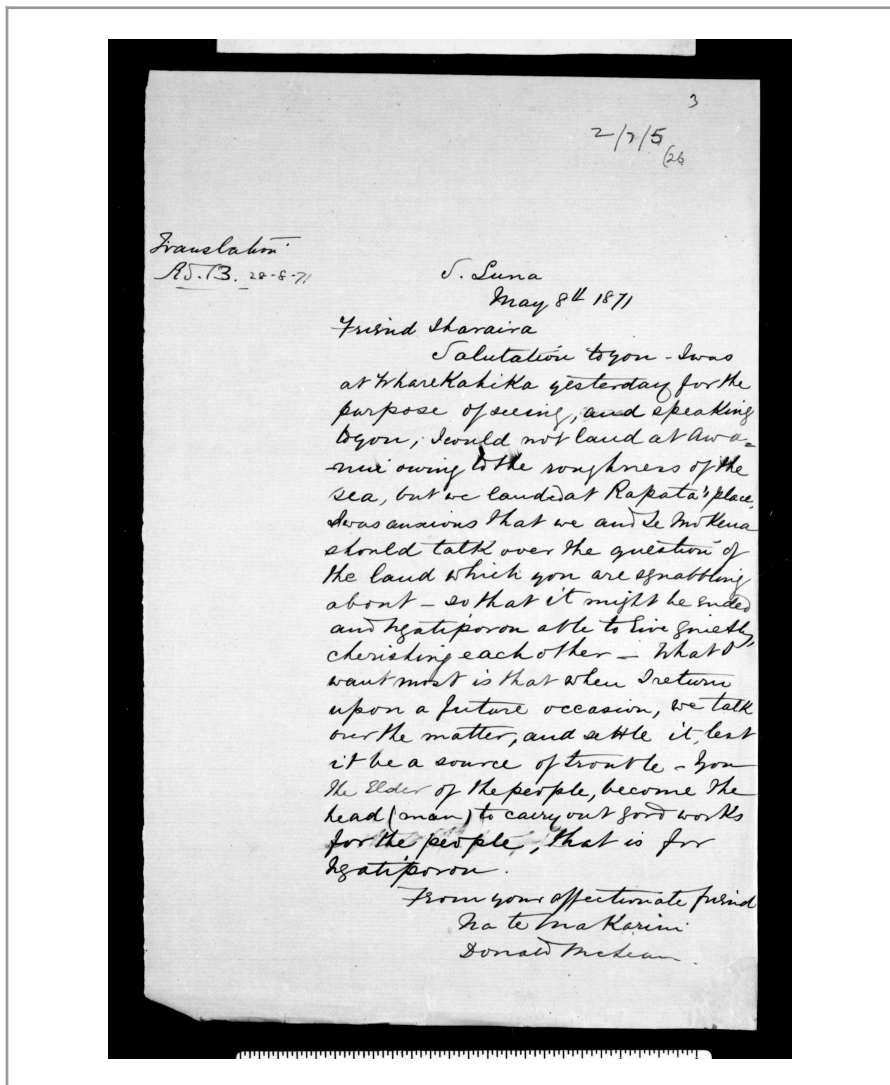 3
2/7/5
(26
Translation
28-8-71
S. Luna
May 8th 1871
Friend Iharaira
Salutation to you - I was
at Wharekahika yesterday for the
purpose of seeing, and speaking
to you, I would not land at Awa=
-nui owing to the roughness of the
sea, but we landed at Rapata's place,
I was anxious that we and Te Mokena
should talk over the question of
the land which you are squabbling
about - so that it might be ended
and Ngatiporou able to live quietly,
cherishing each other - What I
want most is that when I return
upon a future occasion, we talk
over the matter, and settle it, lest
it be a source of trouble - You
the Elder of the people, become the
head (man) to carry out good works
for the people, that is for
Ngatiporou.
From your affectionate friend
Na te Makarini
Donald McLean.